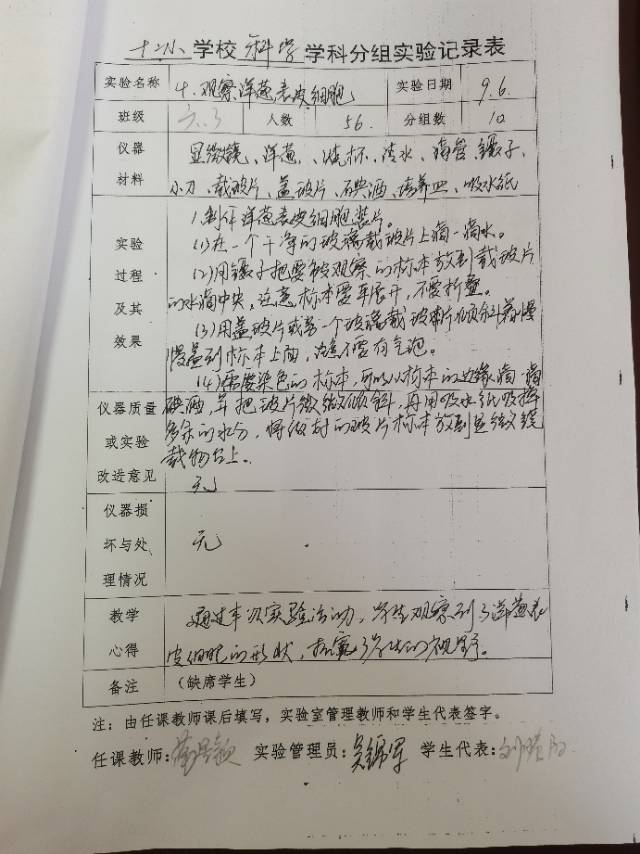 十二小学校 科学 学科分组实验记录表
实验名称 4.观察洋葱表皮细胞 实验日期 9.6
班级 六.3 人数 56. 分组数 10
仪器 显微镜、洋葱、烧杯、清水、滴管、镊子、
材料 小刀、载玻片、盖玻片、碘酒、培养皿、吸水纸
实验过程及其效果
1.制作洋葱表皮细胞装片。
(1)在一个干净的玻璃载玻片上滴一滴水。
(2)用镊子把要被观察的标本放到载玻片
的水滴中央,注意标本要平展开,不要折叠。
(3)用盖玻片或另一个玻璃载玻片倾斜着慢
慢盖到标本上面,注意不要有气泡。
(4)需要染色的标本,可以从标本的边缘滴一滴
碘酒,并把玻片微微倾斜,再用吸水纸吸掉
多余的水分,将做好的玻片标本放到显微镜
载物台上。
仪器质量或实验改进意见 无
仪器损坏与处理情况 无
教学 通过本次实验活动,学生观察到了洋葱表
心得 皮细胞的形状,拓宽了学生的视野。
备注 (缺席学生)
注:由任课教师课后填写,实验室管理教师和学生代表签字。
任课教师: 实验管理员:吴锦军 学生代表: